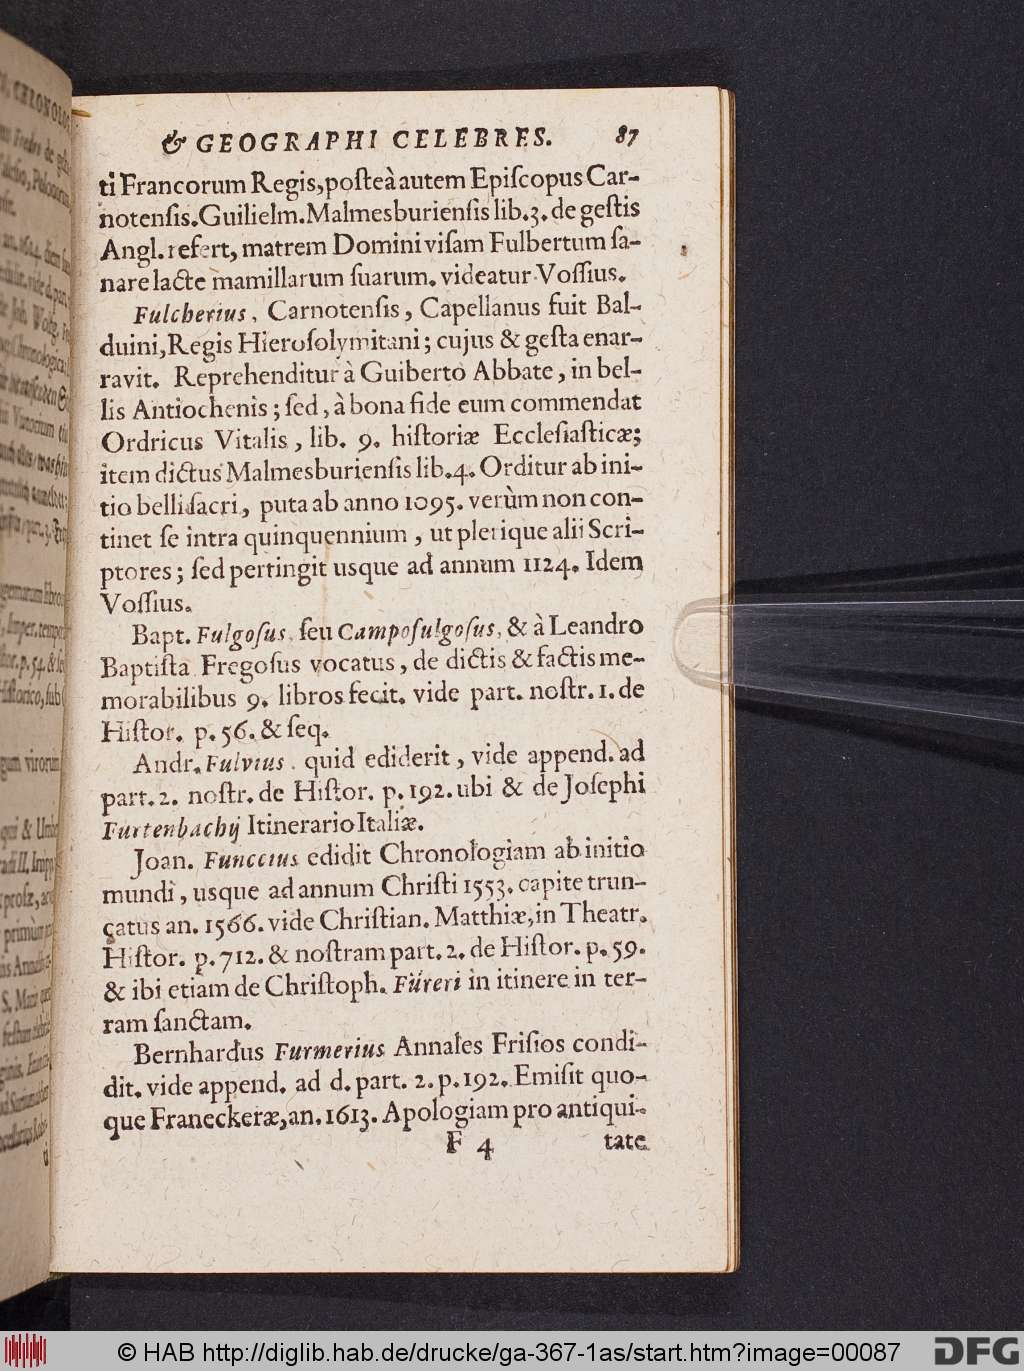 & GEOGRAPHI CELEBRES. 87
ti Francorum Regis, poſteà autem Epiſcopus Car-
notenſis. Guilielm. Malmesburienſis lib. 3. de geſtis
Angl. refert, matrem Domini viſam Fulbertum ſa-
nare lacte mamillarum ſuarum. videatur Voſſius.
Fulcherius, Carnotenſis, Capellanus fuit Bal-
duini, Regis Hieroſolymitani; cujus & geſta enar-
ravit. Reprehenditur à Guiberto Abbate, in bel-
lis Antiochenis; ſed, à bona fide eum commendat
Ordricus Vitalis, lib. 9. hiſtoriæ Eccleſiaſticæ;
item dictus Malmesburienſis lib. 4. Orditur ab ini-
tio belli ſacri, puta ab anno 1095. verùm non con-
tinet ſe intra quinquennium, ut plerique alii Scri-
ptores; ſed pertingit usque ad annum 1124. Idem
Voſſius.
Bapt. Fulgoſus, ſeu Campofulgoſus, & à Leandro
Baptiſta Fregoſus vocatus, de dictis & factis me-
morabilibus 9. libros fecit. vide part. noſtr. 1. de
Hiſtor. p. 56. & ſeq.
Andr. Fulvius, quid ediderit, vide append. ad
part. 2. noſtr. de Hiſtor. p. 192. ubi & de Joſephi
Furtenbachij Itinerario Italiæ.
Joan. Funccius edidit Chronologiam ab initio
mundi, usque ad annum Chriſti 1553. capite trun-
catus an. 1566. vide Chriſtian. Matthiæ, in Theatr.
Hiſtor. p. 712. & noſtram part. 2. de Hiſtor. p. 59.
& ibi etiam de Chriſtoph. Füreri in itinere in ter-
ram ſanctam.
Bernhardus Furmerius Annales Friſios condi-
dit. vide append. ad d. part. 2. p. 192. Emiſit quo-
que Franeckeræ, an. 1613. Apologiam pro antiqui-
F 4 tate
© HAB http://diglib.hab.de/drucke/ga-367-1as/start.htm?image=00087
DFG